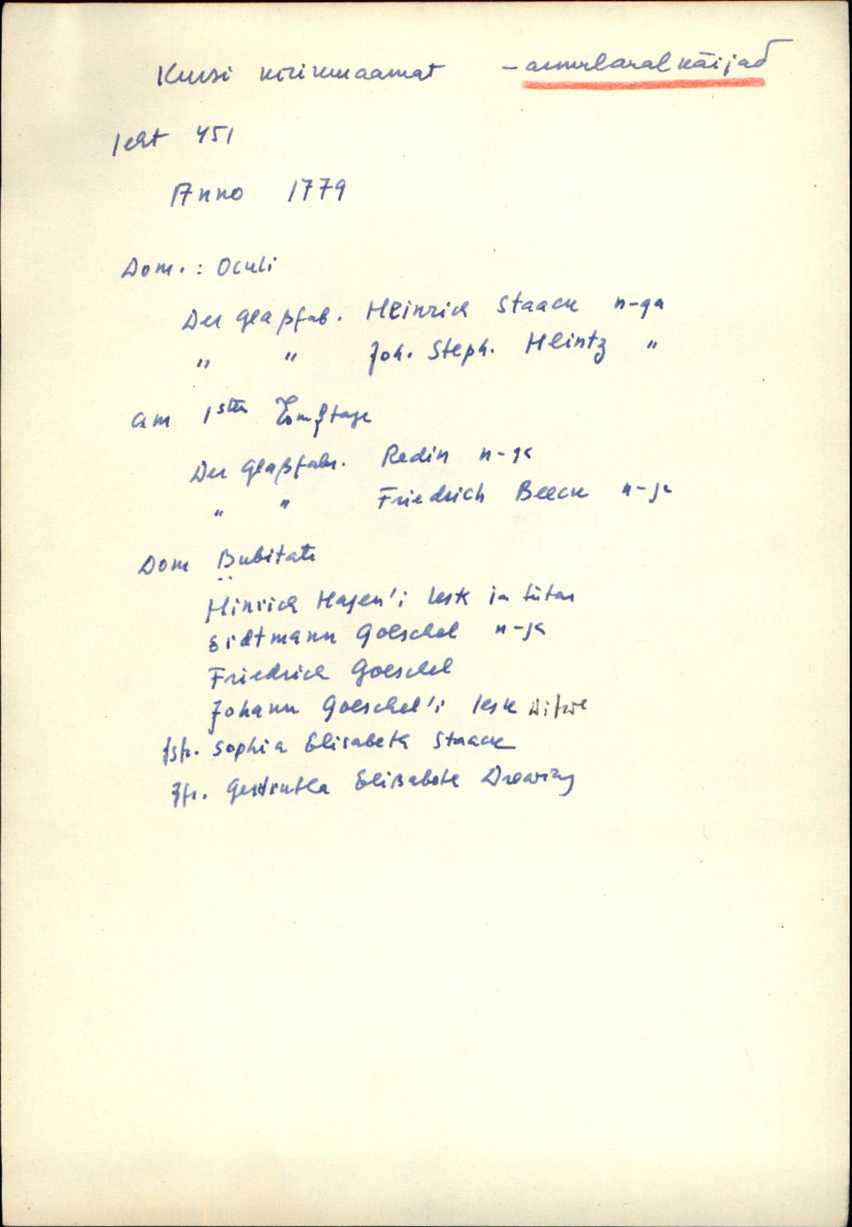 Kursi kirikuraamat - armulaual käijad
leht 451
Anno 1779
Dom. : Oculi
Der Glaßfab. Heinrich Staack n-ga
" " Joh. Steph. Heintz "
am 1sten
Der Glaßfabr. Redin n-ga
" " Friedrich Beeck n-ga
Dom Bubitate
Hinrich Hagen'i lesk ja tütar
Goeschel n-ga
Friedrich Goeschel
Johann Goeschel'i lesk Witwe
Jfr. Sophia Elisabeth Staack
Jfr. Gerdrutha Elisabeth Drewing